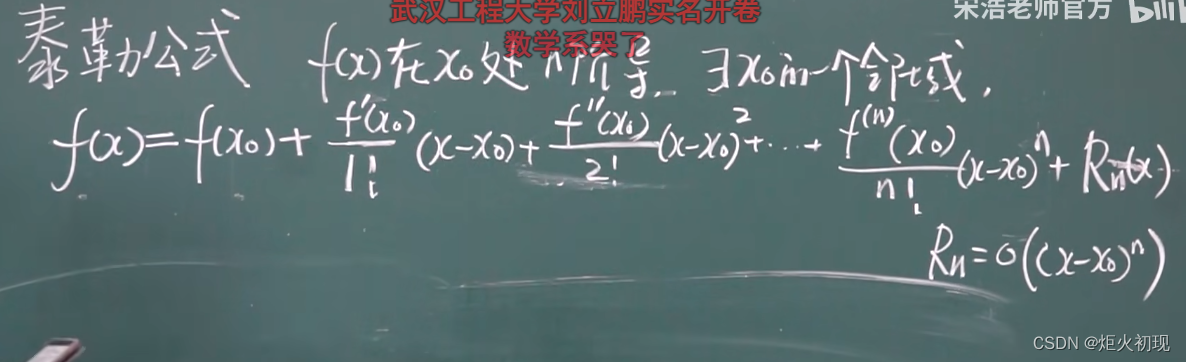 武汉工程大学刘立鹏实名开卷
宋浩老师官方 bili
数学系哭了
泰勒公式 f(x)在x₀处n阶导, ∃x₀的一个邻域,
f(x)=f(x₀)+\frac{f'(x₀)}{1!}(x-x₀)+\frac{f''(x₀)}{2!}(x-x₀)^2+⋯+\frac{f^{(n)}(x₀)}{n!}(x-x₀)^n+Rₙ(x)
Rₙ=o((x-x₀)^n)
CSDN @炬火初现